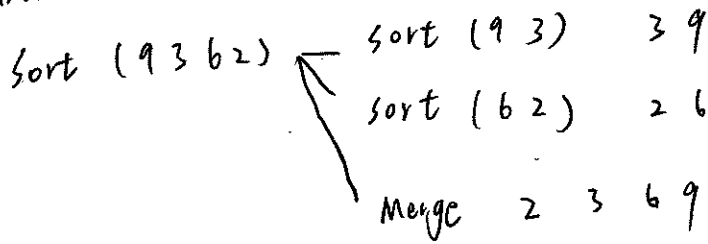 sort (9 3 6 2)
sort (9 3) 3 9
sort (6 2) 2 6
Merge 2 3 6 9